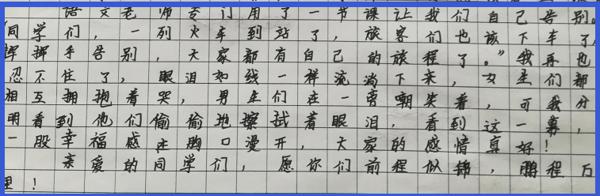 语文老师专门用了一节课让我们自己告别。
“同学们，一列火车到站了，旅客们也该下车了，
挥挥手告别，大家都有自己的旅程了。”我再也
忍不住了，眼泪如线一样流淌下来，女生们都
相互拥抱着哭，男生们在一旁嘲笑着，可我分
明看到他们偷偷地擦拭着眼泪，看到这一幕，
一股幸福感在胸口漫开，大家的感情真好！
亲爱的同学们，愿你们前程似锦，鹏程万
里！